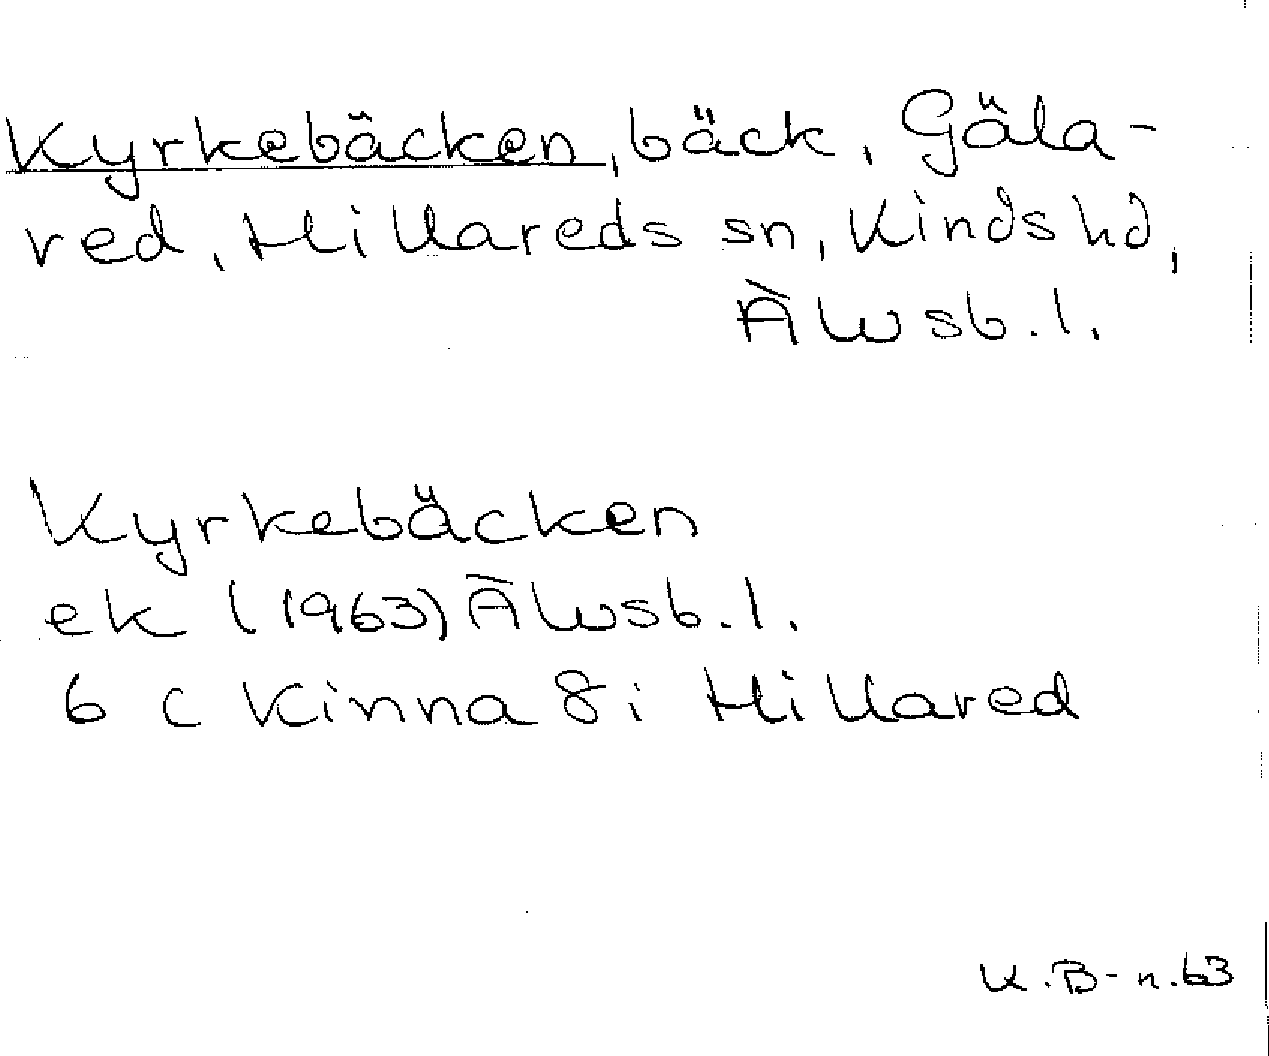 Kyrkebäcken, bäck, Gäla-
red, Hillareds sn, Kinds hd,
Älvsb. l.
Kyrkebäcken
ek (1963) Älvsb. l.
6 C Kinna 8 i Hillared
K.B-n.63